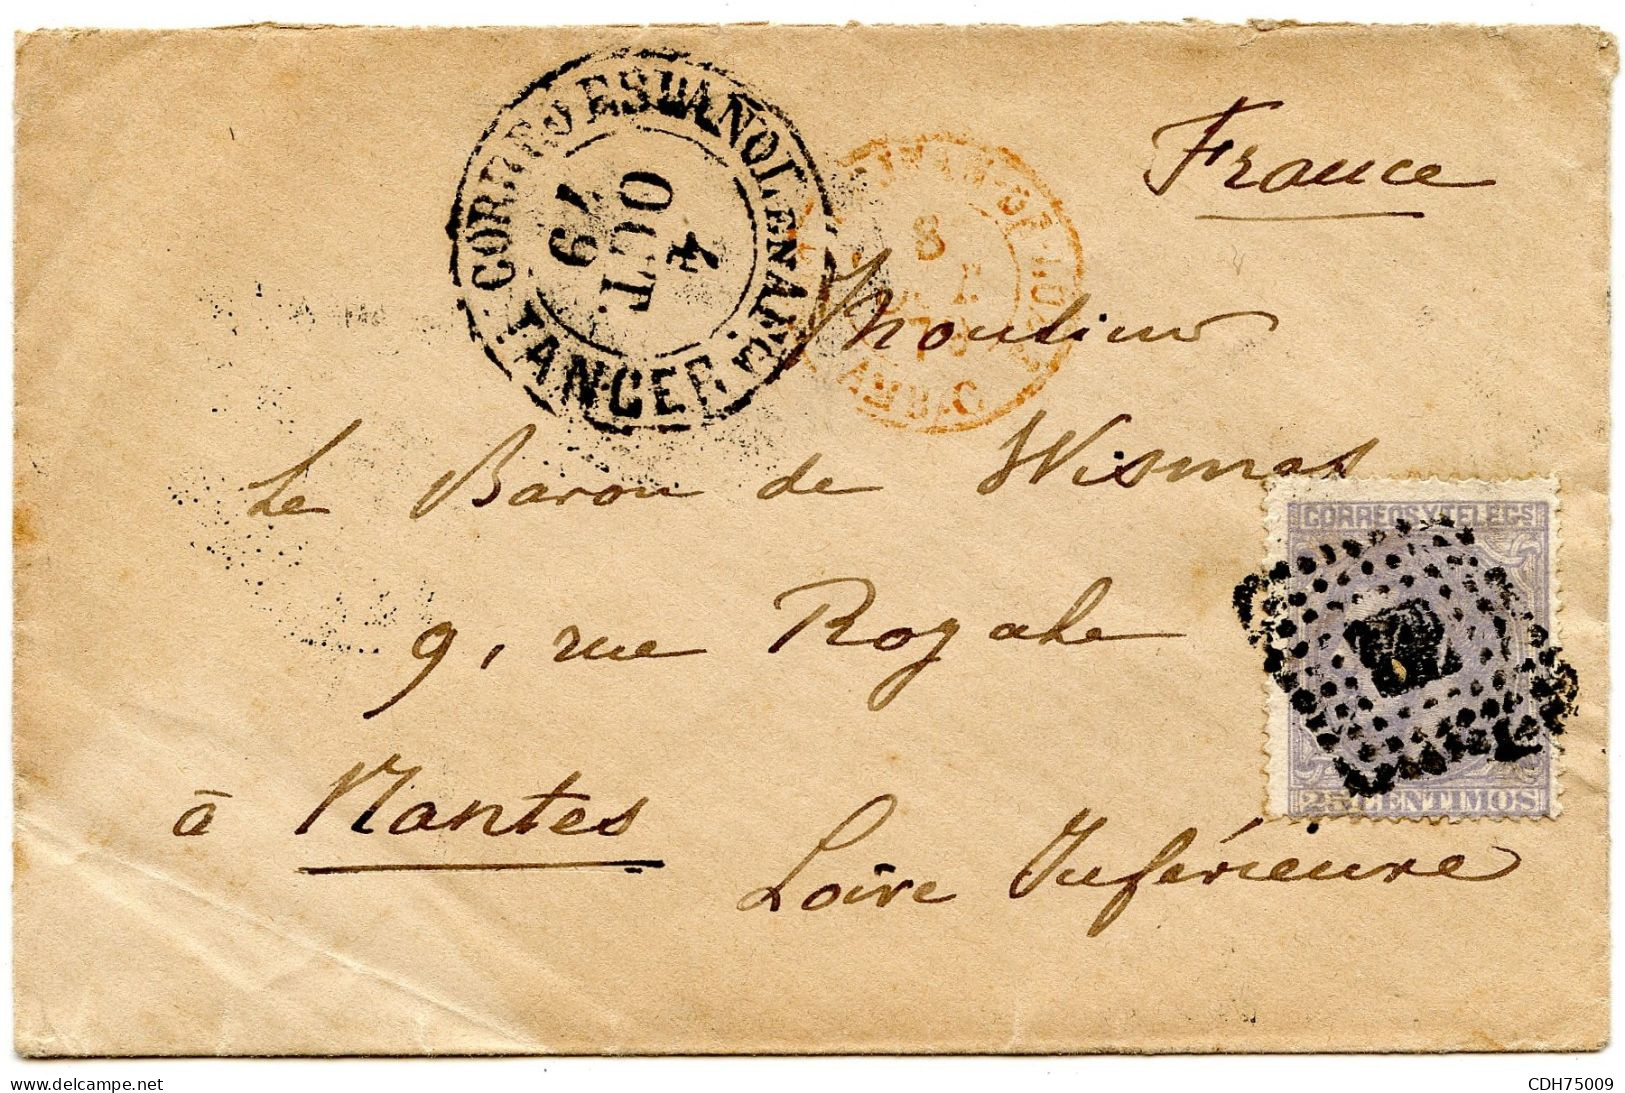 France
CORREO ESPAÑOL EN MARC.
TANGER
4
OCT.
79
8
Monsieur
Le Baron de Wismes
9, rue Royale
à Nantes
Loire Inférieure
CORREOS Y TELEGS
25 CENTIMOS
CDH75009